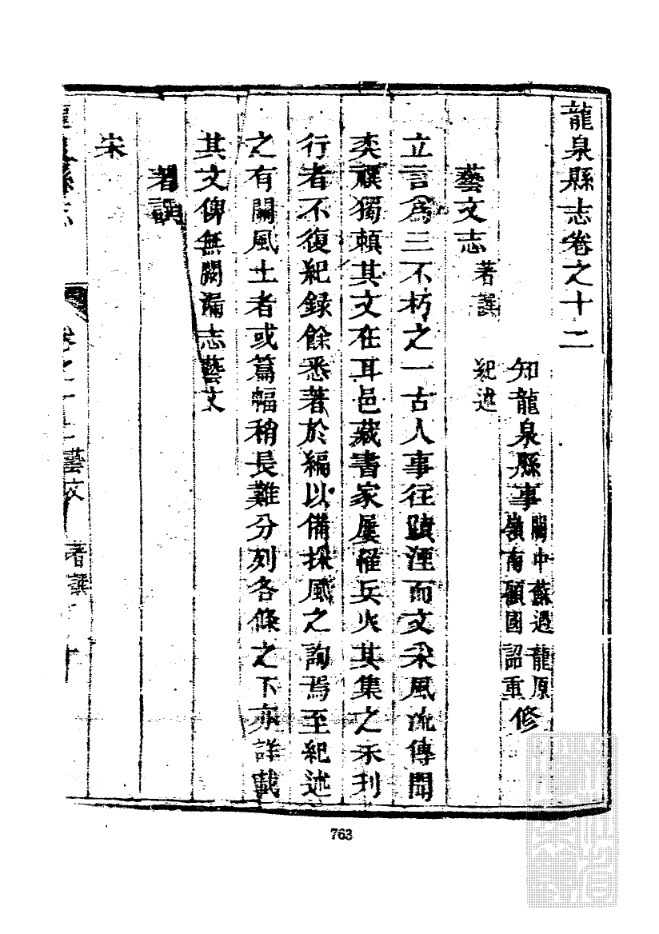 龍泉縣志卷之十二
知龍泉縣事
關中蘇遇龍原
嶺南顧國詔重
修
藝文志 著譔 紀述
立言爲三不朽之一古人事往蹟湮而文采風流傳聞
奕禩獨賴其文在耳邑藏書家屢罹兵火其集之未刋
行者不復紀録餘悉著於編以備採風之詢焉至紀述
之有關風土者或篇幅稍長難分列各條之下亦詳載
其文俾無闕漏志藝文
著譔
宋
龍泉縣志
卷之十二藝文 著譔
763